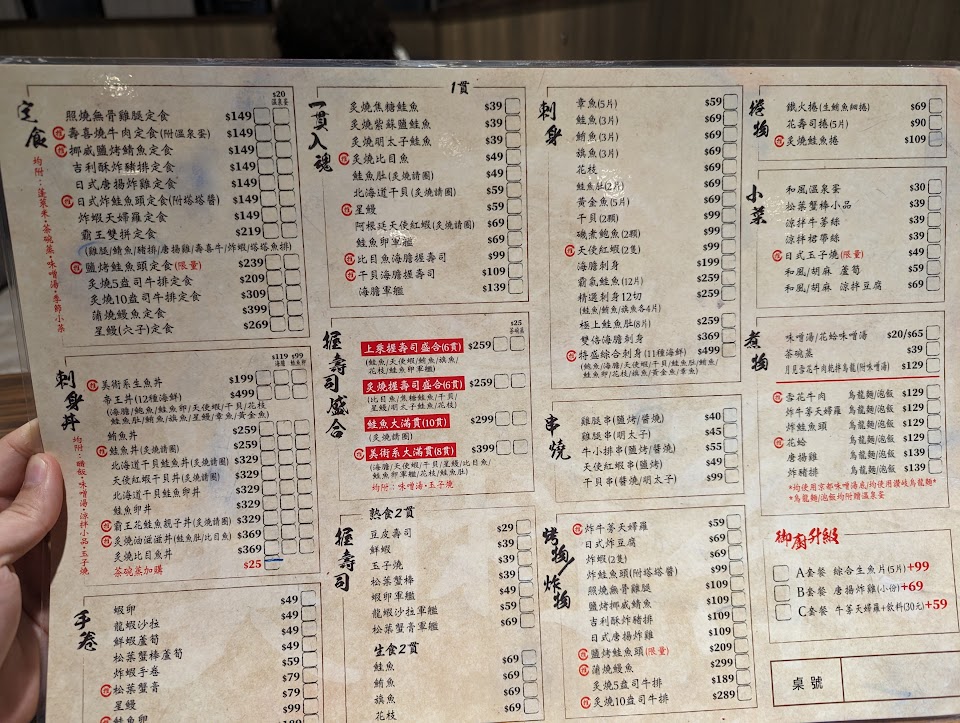 定食
$20
溫泉蛋
照燒無骨雞腿定食 $149
壽喜燒牛肉定食(附溫泉蛋) $149
挪威鹽烤鯖魚定食 $149
吉利酥炸豬排定食 $149
日式唐揚炸雞定食 $149
日式炸鮭魚頭定食(附塔塔醬) $149
炸蝦天婦羅定食 $149
霸王雙拼定食 $219
(雞腿/鯖魚/豬排/唐揚雞/壽喜牛/炸蝦/塔塔魚排)
鹽烤鮭魚頭定食(限量) $239
炙燒5盎司牛排定食 $209
炙燒10盎司牛排定食 $309
蒲燒鰻魚定食 $399
星鰻(穴子)定食 $269
均附：蓬萊米·茶碗蒸·味噌湯·季節小菜
刺身丼
$119 $99
海膽 鮭魚卵
美術系生魚丼 $199
帝王丼(12種海鮮) $499
(海膽/鮑魚/鮭魚卵/天使蝦/干貝/花枝
鮭魚肚/鮪魚/旗魚/星鰻/章魚/黃金魚)
鮪魚丼 $259
鮭魚丼(炙燒請圈) $259
北海道干貝鮭魚丼(炙燒請圈) $329
天使紅蝦干貝丼(炙燒請圈) $329
北海道干貝鮭魚卵丼 $329
鮭魚卵丼 $329
霸王花鮭魚親子丼(炙燒請圈) $329
炙燒油滋滋丼(鮭魚肚/比目魚) $369
炙燒比目魚丼 $369
茶碗蒸加購 $25
均附：醋飯·味噌湯·涼拌小品·玉子燒
手卷
蝦卵 $49
龍蝦沙拉 $49
鮮蝦蘆筍 $49
松葉蟹棒蘆筍 $49
炸蝦手卷 $59
松葉蟹膏 $79
星鰻 $79
鮭魚卵 $99
一貫入魂
1貫
炙燒焦糖鮭魚 $39
炙燒紫蘇鹽鮭魚 $39
炙燒明太子鮭魚 $39
炙燒比目魚 $49
鮭魚肚(炙燒請圈) $49
北海道干貝(炙燒請圈) $59
星鰻 $59
阿根廷天使紅蝦(炙燒請圈) $69
鮭魚卵軍艦 $69
比目魚海膽握壽司 $99
干貝海膽握壽司 $109
海膽軍艦 $139
握壽司盛合
$25
茶碗蒸
上乘握壽司盛合(6貫) $259
(鮭魚/天使蝦/鮪魚/旗魚/
花枝/鮭魚卵軍艦)
炙燒握壽司盛合(6貫) $259
(比目魚/焦糖鮭魚/干貝/
星鰻/明太子鮭魚/花枝)
鮭魚大滿貫(10貫) $299
(炙燒請圈)
美術系大滿貫(8貫) $399
(海膽/天使蝦/干貝/星鰻/比目魚/
鮭魚卵軍艦/花枝/鮭魚肚)
均附：味噌湯·玉子燒
握壽司
熟食2貫
豆皮壽司 $29
鮮蝦 $39
玉子燒 $39
松葉蟹棒 $39
蝦卵軍艦 $49
龍蝦沙拉軍艦 $59
松葉蟹膏軍艦 $69
生食2貫
鮭魚 $69
鮪魚 $69
旗魚 $69
花枝 $69
刺身
章魚(5片) $59
鮭魚(3片) $69
鮪魚(3片) $69
旗魚(3片) $69
花枝 $69
鮭魚肚(2片) $69
黃金魚(5片) $69
干貝(2顆) $99
磯煮鮑魚(2顆) $99
天使紅蝦(2隻) $99
海膽刺身 $199
霸氣鮭魚(12片) $259
精選刺身12切 $259
(鮭魚/鮪魚/旗魚各4片)
極上鮭魚肚(8片) $259
雙倍海膽刺身 $369
特盛綜合刺身(11種海鮮) $499
串燒
雞腿串(鹽烤/醬燒) $40
雞腿串(明太子) $45
牛小排串(鹽烤/醬燒) $55
天使紅蝦串(鹽烤) $49
干貝串(醬燒/明太子) $99
烤物/炸物
炸牛蒡天婦羅 $59
日式炸豆腐 $69
炸蝦(2隻) $69
炸鮭魚頭(附塔塔醬) $99
照燒無骨雞腿 $109
鹽烤挪威鯖魚 $109
吉利酥炸豬排 $109
日式唐揚炸雞 $109
鹽烤鮭魚頭(限量) $209
蒲燒鰻魚 $299
炙燒5盎司牛排 $189
炙燒10盎司牛排 $289
捲物
鐵火捲(生鮪魚細捲) $69
花壽司捲(5片) $90
炙燒鮭魚捲 $109
小菜
和風溫泉蛋 $30
松葉蟹棒小品 $39
涼拌牛蒡絲 $39
涼拌裙帶絲 $39
日式玉子燒(限量) $49
和風/胡麻 蘆筍 $59
和風/胡麻 涼拌豆腐 $69
煮物
味噌湯/花蛤味噌湯 $20/$65
茶碗蒸 $39
月見雪花牛肉乾拌烏龍(附味噌湯) $129
雪花牛肉 烏龍麵/泡飯 $129
炸牛蒡天婦羅 烏龍麵/泡飯 $129
炸鮭魚頭 烏龍麵/泡飯 $129
花蛤 烏龍麵/泡飯 $129
唐揚雞 烏龍麵/泡飯 $139
炸豬排 烏龍麵/泡飯 $139
*均使用京都味噌湯底/均使用讚岐烏龍麵*
*烏龍麵/泡飯均附贈溫泉蛋
御廚升級
A套餐 綜合生魚片(5片)+99
B套餐 唐揚炸雞(小份)+69
C套餐 牛蒡天婦羅+飲料(30元)+59
桌號